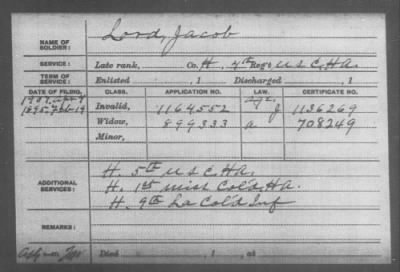 NAME OF SOLDIER: Lord, Jacob
SERVICE: Late rank, Co. H. 4th Reg't U S C. H A.
TERM OF SERVICE: Enlisted , 1 Discharged , 1
DATE OF FILING. CLASS. APPLICATION NO. LAW. CERTIFICATE NO.
Invalid, 1164552 J 1136269
1895 Feb 19 Widow, 899333 a 708249
Minor,
ADDITIONAL SERVICES: H. 5th U S C. H A.
H. 1st Miss Col'd H A.
H. 9th La Col'd Inf
REMARKS:
Died , 1 , at